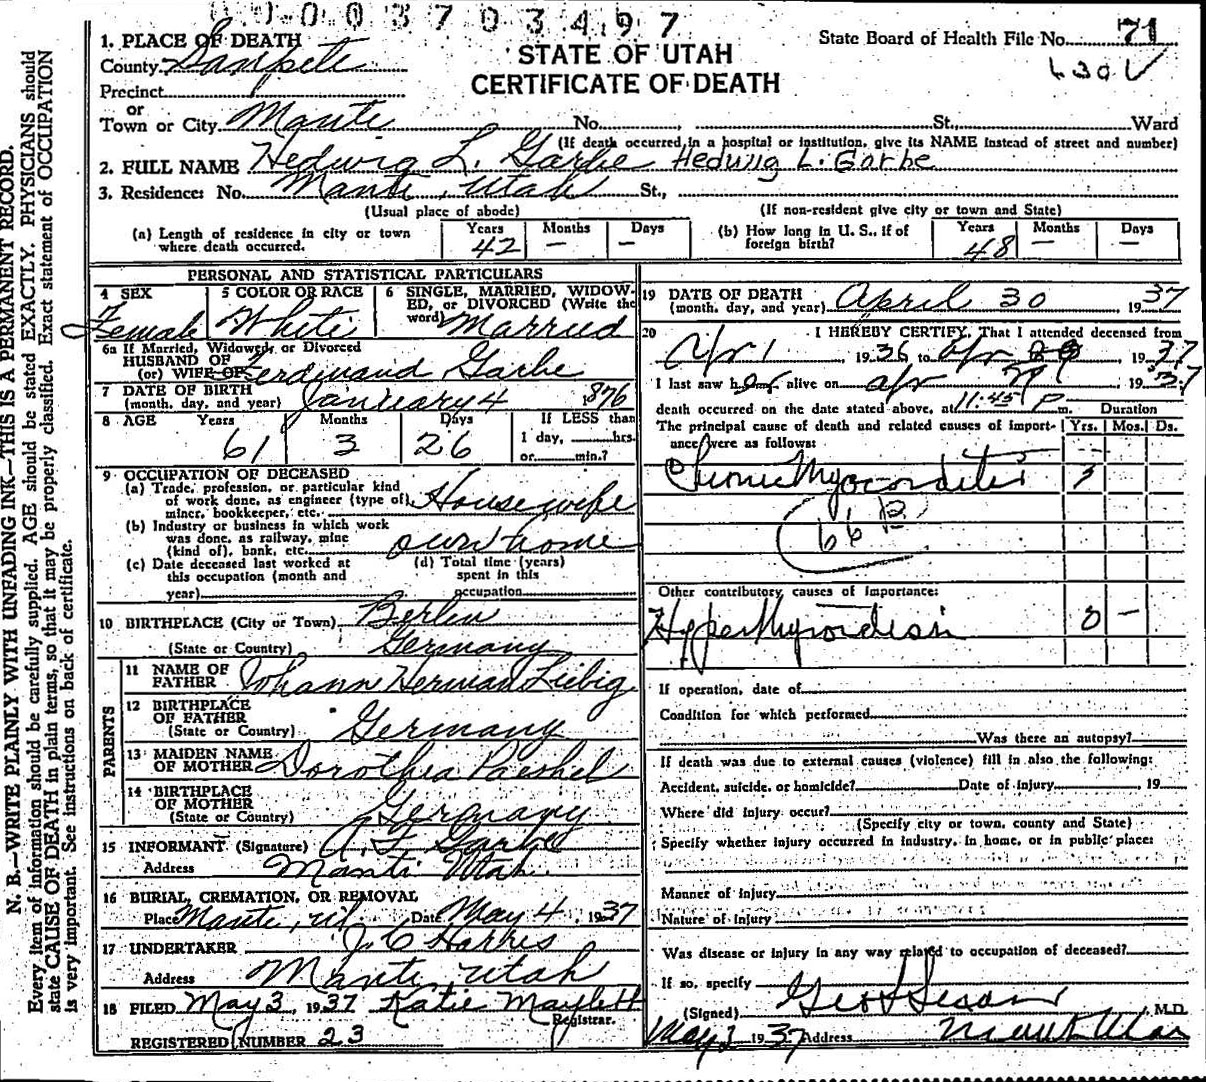 0003703497
1. PLACE OF DEATH
STATE OF UTAH
CERTIFICATE OF DEATH
State Board of Health File No. 71
630
County Sanpete
Precinct
or
Town or City Manti No. , St., Ward
(If death occurred in a hospital or institution, give its NAME instead of street and number)
2. FULL NAME Hedwig L. Garbe Hedwig L. Garbe
3. Residence: No. Manti, Utah St.,
(Usual place of abode) (If non-resident give city or town and State)
(a) Length of residence in city or town where death occurred. Years 42 Months — Days —
(b) How long in U. S., if of foreign birth? Years 48 Months — Days —
PERSONAL AND STATISTICAL PARTICULARS
4 SEX Female
5 COLOR OR RACE White
6 SINGLE, MARRIED, WIDOWED, or DIVORCED (Write the word) Married
6a If Married, Widowed, or Divorced
HUSBAND OF
(or) WIFE OF Ferdinand Garbe
7 DATE OF BIRTH
(month, day, and year) January 4 1876
8 AGE Years 61 Months 3 Days 26 If LESS than 1 day, hrs. or min.?
9 OCCUPATION OF DECEASED
(a) Trade, profession, or particular kind
of work done, as engineer (type of),
miner, bookkeeper, etc. Housewife
(b) Industry or business in which work
was done, as railway, mine
(kind of), bank, etc. own home
(c) Date deceased last worked at
this occupation (month and
year)
(d) Total time (years)
spent in this
occupation
10 BIRTHPLACE (City or Town) Berlin
(State or Country) Germany
PARENTS
11 NAME OF
FATHER Johann Herman Liebig
12 BIRTHPLACE
OF FATHER
(State or Country) Germany
13 MAIDEN NAME
OF MOTHER Dorothea Paeshel
14 BIRTHPLACE
OF MOTHER
(State or Country) Germany
15 INFORMANT (Signature) A. F. Garbe
Address Manti Utah.
16 BURIAL, CREMATION, OR REMOVAL
Place Manti, Ut. Date May 4, 1937
17 UNDERTAKER J. C Harris
Address Manti, Utah
18 FILED May 3, 1937 Katie Maylett
Registrar.
REGISTERED NUMBER 23
19 DATE OF DEATH
(month, day, and year) April 30 1937
20 I HEREBY CERTIFY, That I attended deceased from
Apr 1 1936 to Apr 29 1937
I last saw her alive on Apr 29 1937
death occurred on the date stated above, at 11:45 P m.
Duration
The principal cause of death and related causes of importance were as follows: Yrs. Mos. Ds.
Chronic Myocarditis 3
Other contributory causes of importance:
Hyperthyroidism —
If operation, date of
Condition for which performed
Was there an autopsy?
If death was due to external causes (violence) fill in also the following:
Accident, suicide, or homicide? Date of injury , 19
Where did injury occur?
(Specify city or town, county and State)
Specify whether injury occurred in industry, in home, or in public place:
Manner of injury
Nature of injury
Was disease or injury in any way related to occupation of deceased?
If so, specify
(Signed) M.D.
1937 Address Manti Utah
N. B.—WRITE PLAINLY WITH UNFADING INK—THIS IS A PERMANENT RECORD.
Every item of information should be carefully supplied. AGE should be stated EXACTLY. PHYSICIANS should
state CAUSE OF DEATH in plain terms, so that it may be properly classified. Exact statement of OCCUPATION
is very important. See instructions on back of certificate.